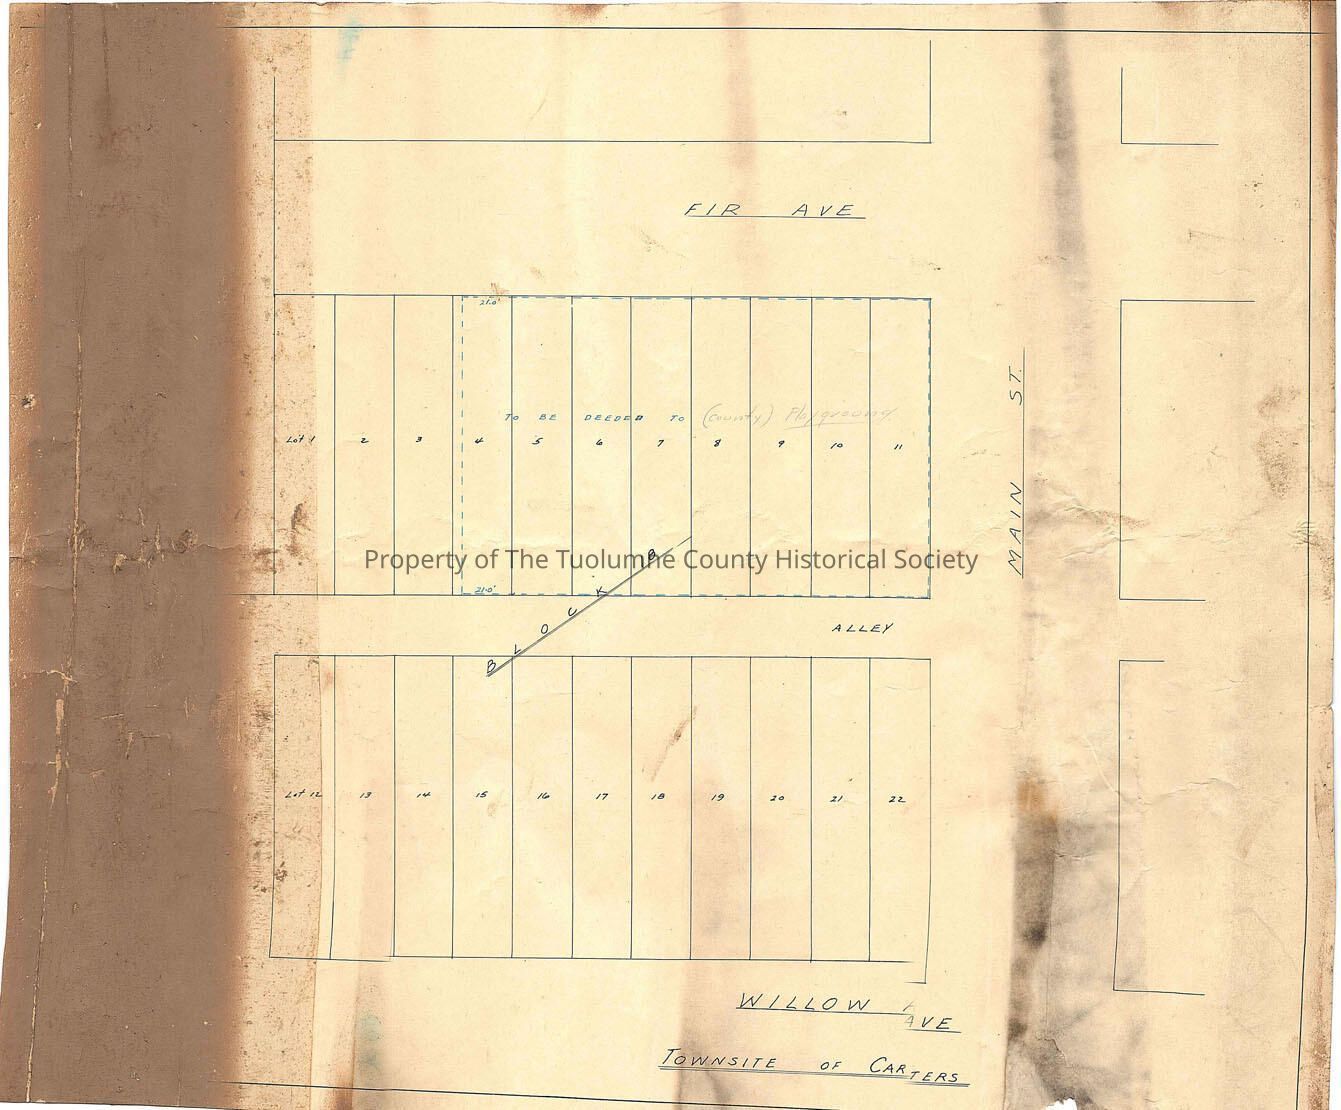 FIR AVE
21.0'
TO BE DEEDED TO (County) Playground.
Lot 1 2 3 4 5 6 7 8 9 10 11
MAIN ST.
Property of The Tuolumne County Historical Society
21.0'
BLOCK B
ALLEY
Lot 12 13 14 15 16 17 18 19 20 21 22
WILLOW AVE
TOWNSITE OF CARTERS